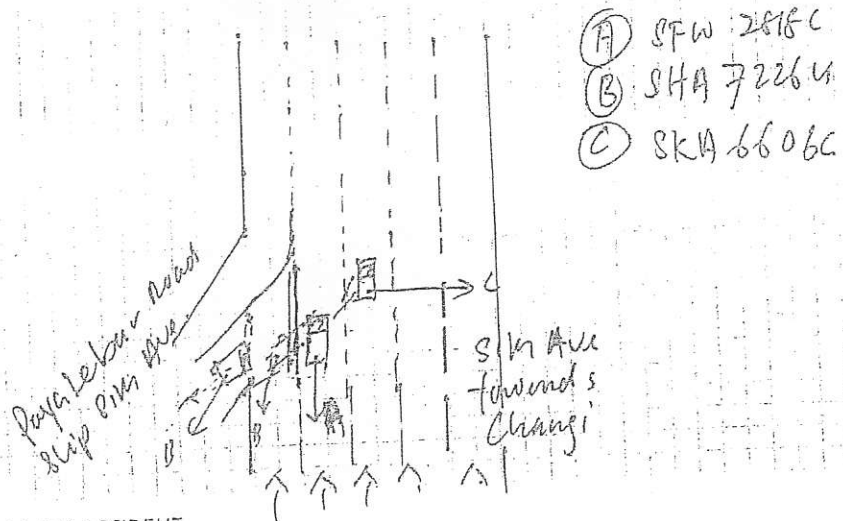 Ⓐ SFW 2818C
Ⓑ SHA 7226U
Ⓒ SKA 6606G
Paya Lebar road
slip Sims Ave
C
Sims Ave
towards
Changi
B
B